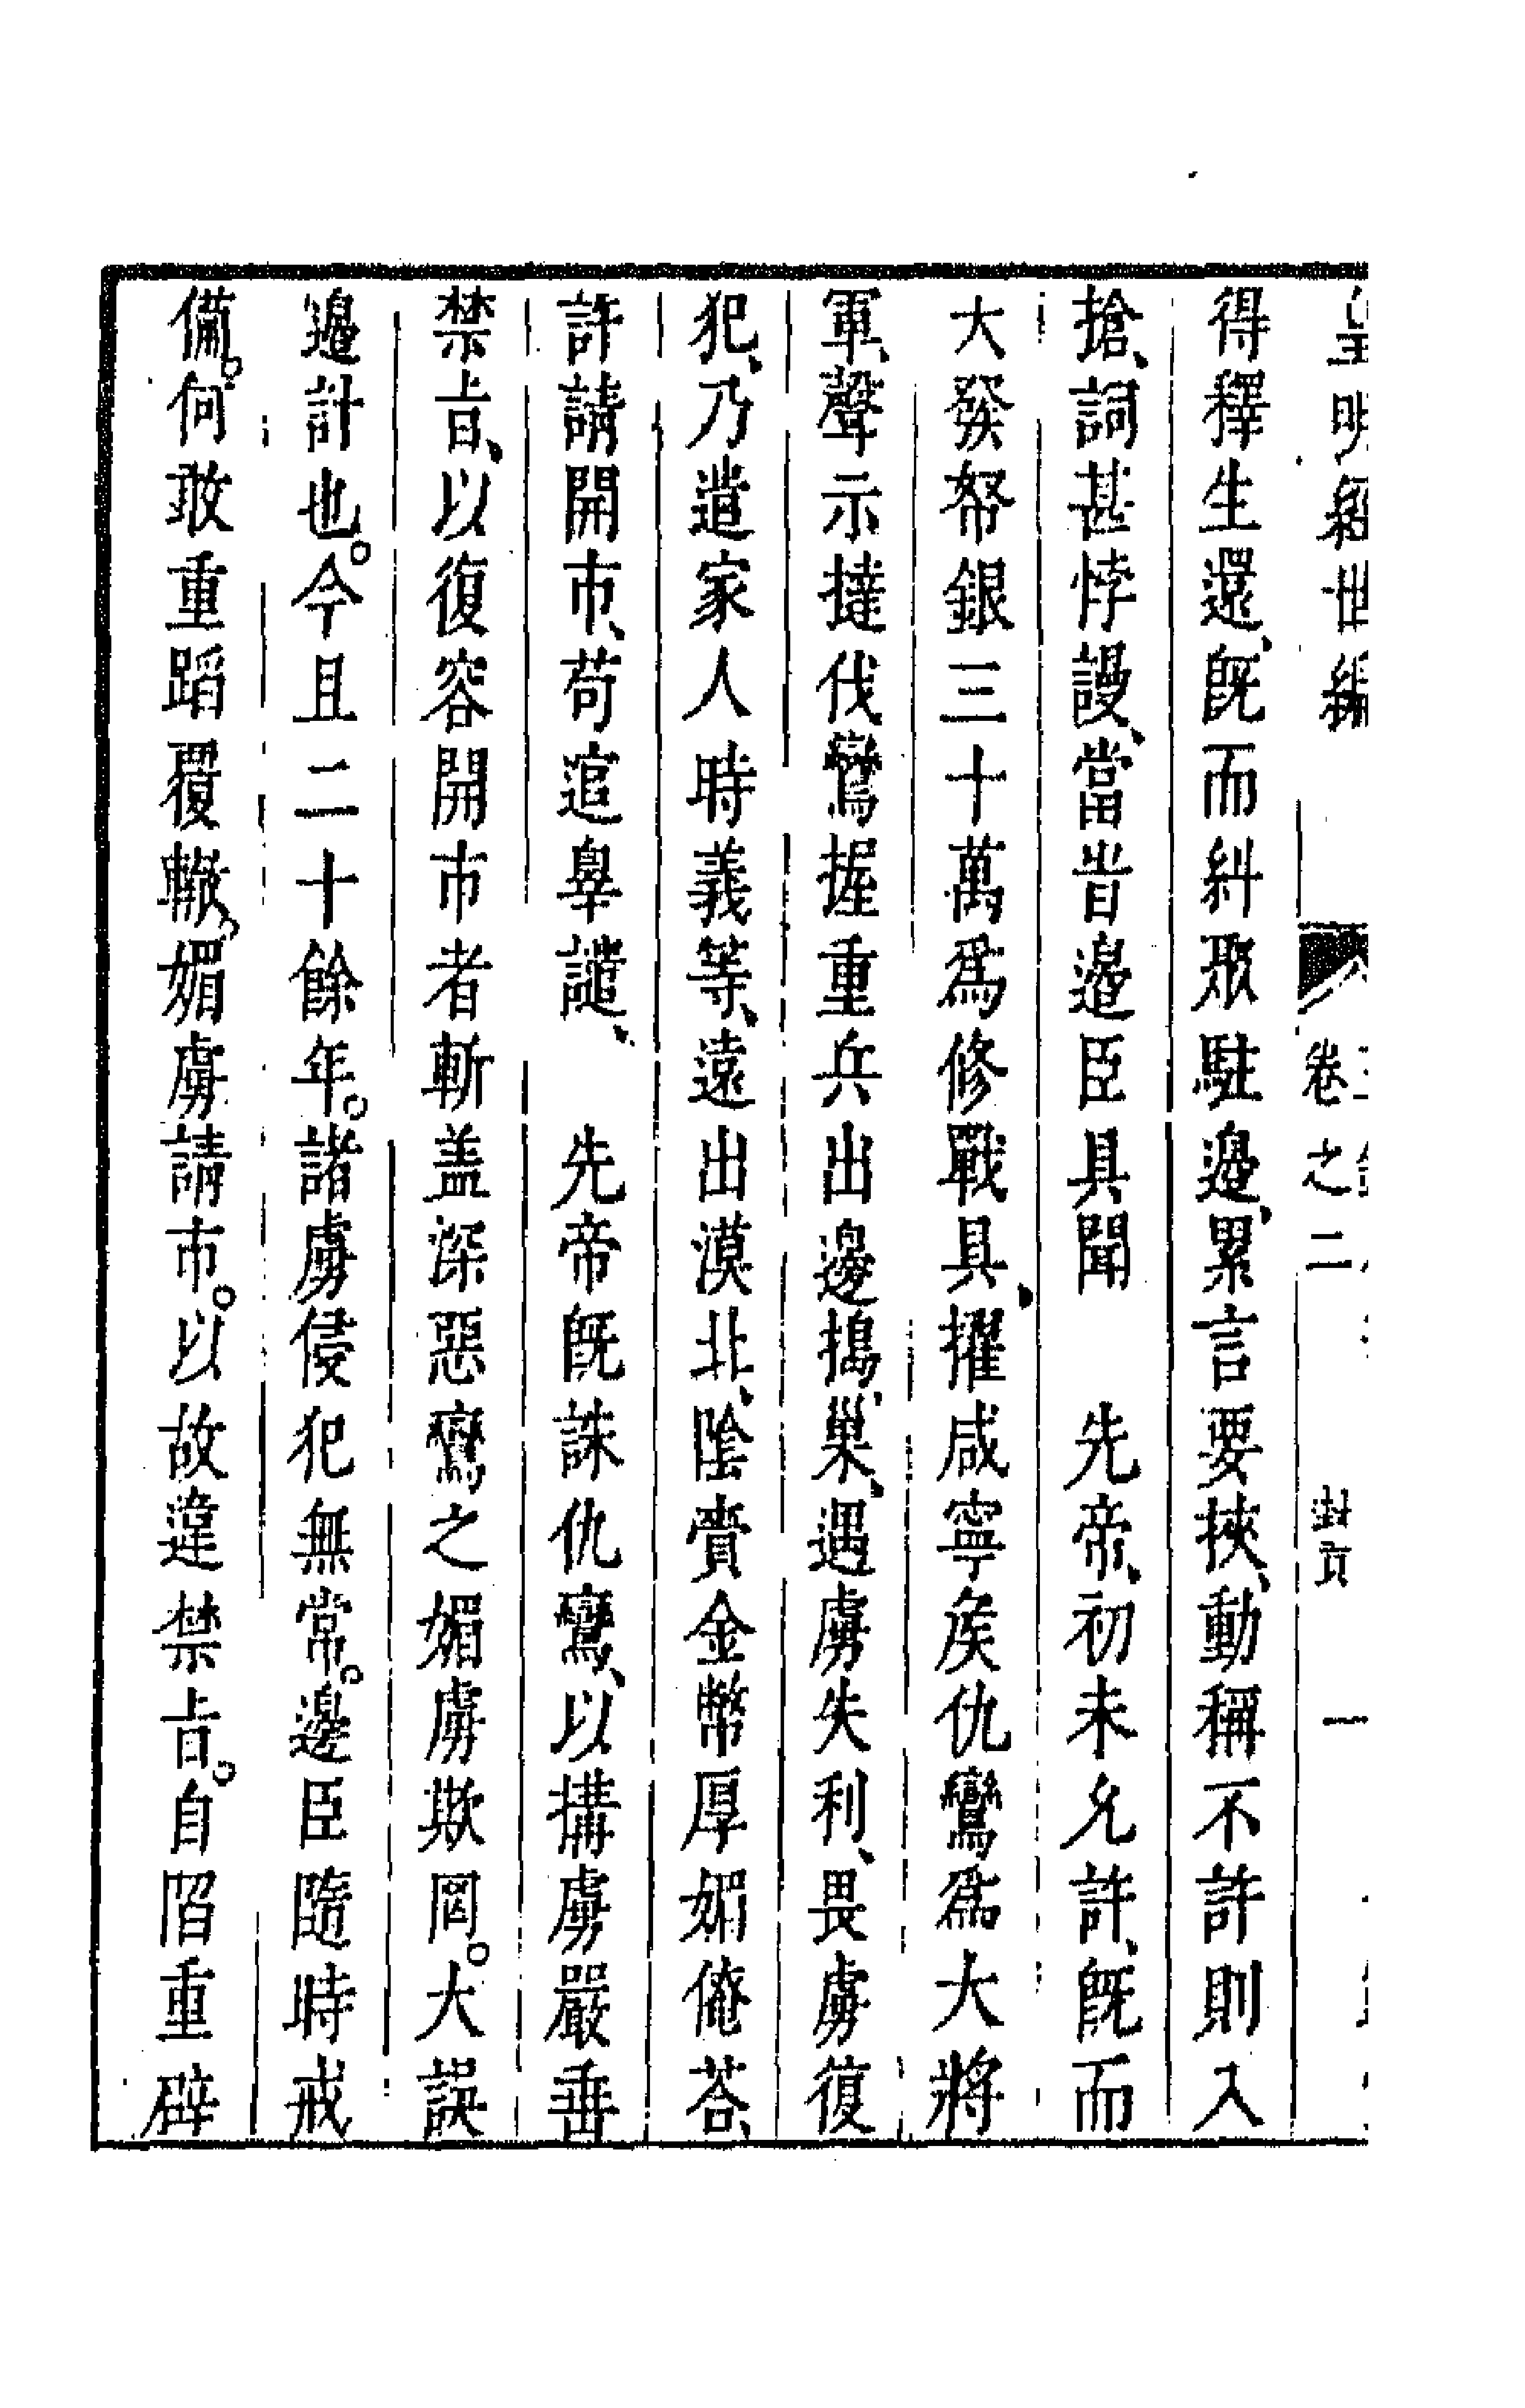 皇明經世編 卷之二 封貢 一
得釋生還、旣而糾聚駐邉、累言要挾、動稱不許則入
搶、詞甚悖謾、當昔邉臣具聞 先帝、初未允許、旣而
大發帑銀三十萬爲修戰具、擢咸寧矦仇鸞爲大將
軍、聲示撻伐、鸞握重兵出邊搗巢、遇虜失利、畏虜復
犯、乃遣家人時義等、遠出漠北、陰賫金幣厚媚俺荅、
許請開市、苟逭辠譴、 先帝旣誅仇鸞、以搆虜嚴垂
禁㫖、以復容開市者斬盖深惡鸞之媚虜欺罔。大誤
邉計也。今且二十餘年。諸虜侵犯無常。邊臣隨時戒
備。何敢重蹈覆轍。媚虜請市。以故違禁㫖。自陷重辟